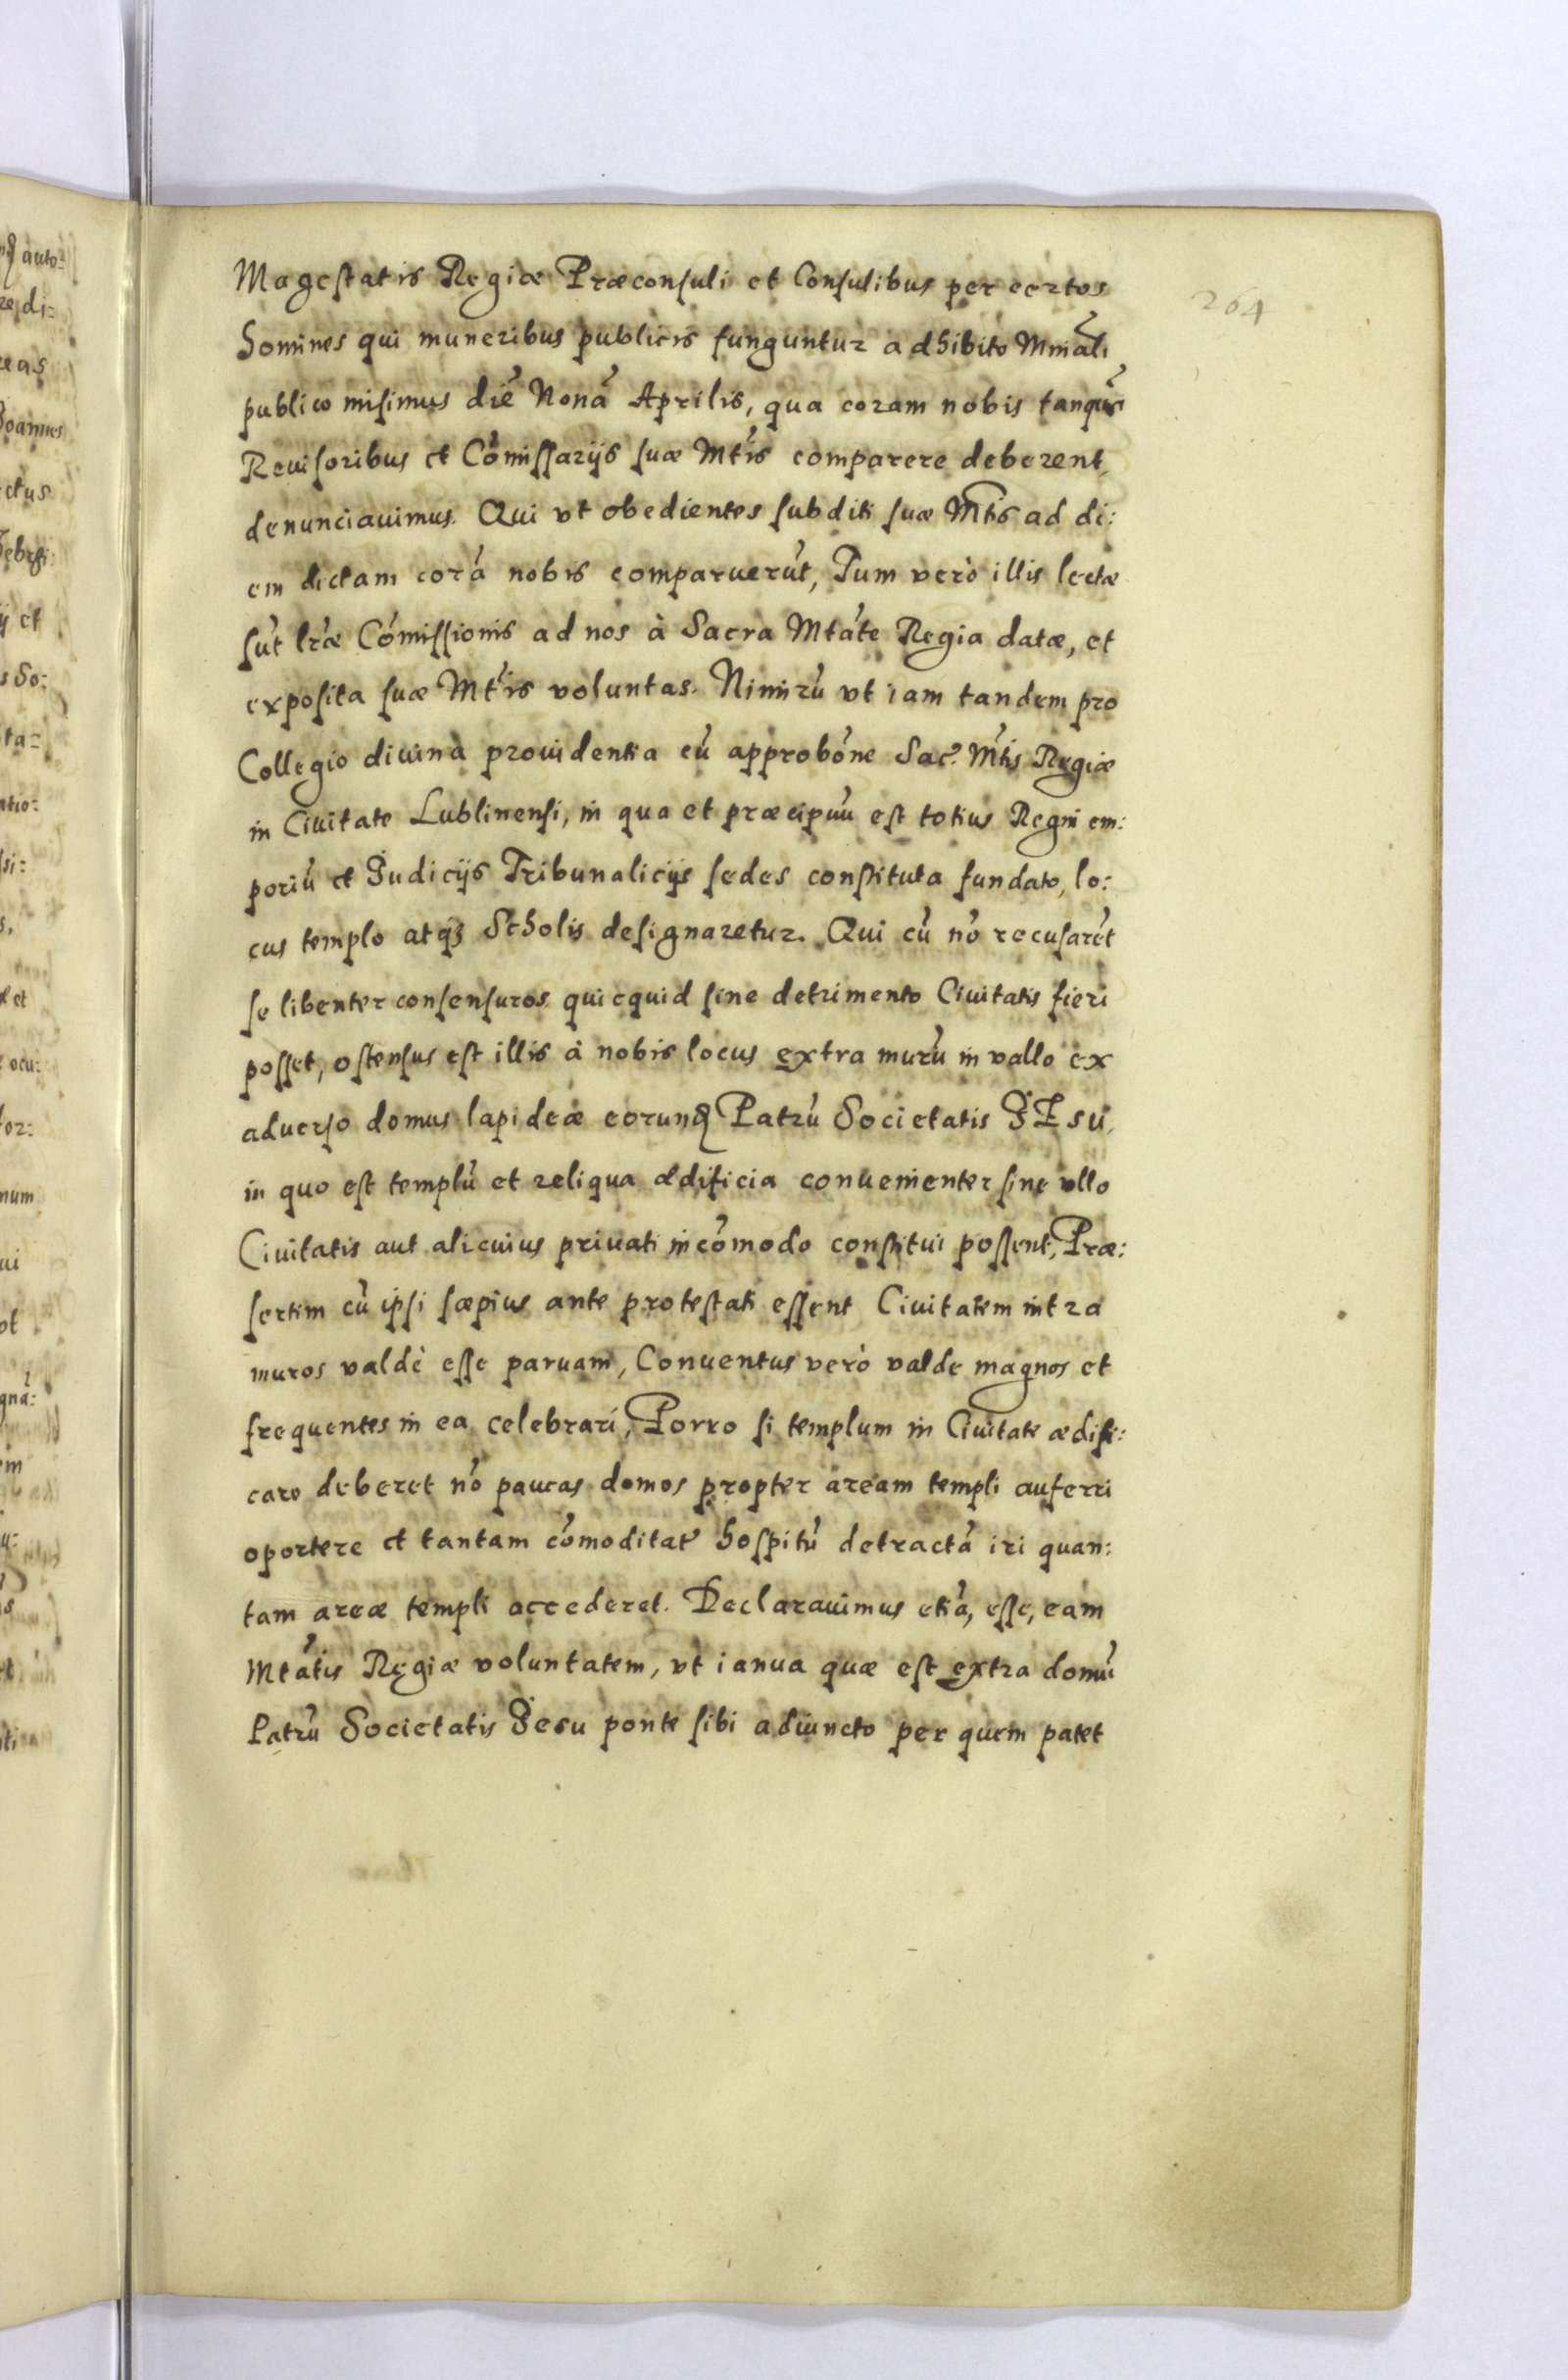 264
Magestatis Regiæ Præconsuli et Consulibus per certos
homines qui muneribus publicis funguntur adhibito Minãli
publico misimus diẽ Nonã Aprilis, qua coram nobis tanquã
Reuisoribus et Cõmissarijs suæ Mtis comparere deberent,
denunciauimus. Qui vt obedientes subditi suæ Mtis ad di:
em dictam corã nobis comparuerũt, Tum verò illis lectæ
sũt lræ Cõmissionis ad nos à Sacra Mtãte Regia datæ, et
exposita suæ Mtis voluntas. Nimirũ vt iam tandem pro
Collegio diuina prouidentia cũ approbõne Sac. Mtis Regiæ
in Ciuitate Lublinensi, in qua et præcipuũ est totius Regni em:
poriũ et Iudicijs Tribunalicijs sedes constituta fundato, lo:
cus templo atq3 Scholis designaretur. Qui cũ nõ recusarẽt
se libenter consensuros quicquid sine detrimento Ciuitatis fieri
posset, ostensus est illis à nobis locus extra murũ in vallo ex
aduerso domus lapideæ eorunđ Patrũ Societatis IEsu,
in quo est templũ et reliqua ædificia conuenienter sine vllo
Ciuitatis aut alicuius priuati incõmodo constitui possent, Præ:
sertim cũ ipsi sæpius ante protestati essent Ciuitatem intra
muros valdè esse paruam, Conuentus verò valde magnos et
frequentes in ea celebrari, Porro si templum in Ciuitate ædifi:
care deberet nõ paucas domos propter aream templi auferri
oportere et tantam cõmoditatẽ hospitũ detractã iri quan:
tam areæ templi accederet. Declarauimus etiã, esse, eam
Mtãtis Regiæ voluntatem, vt ianua quæ est extra domũ
Patrũ Societatis Iesu ponte sibi adiuncto per quem patet